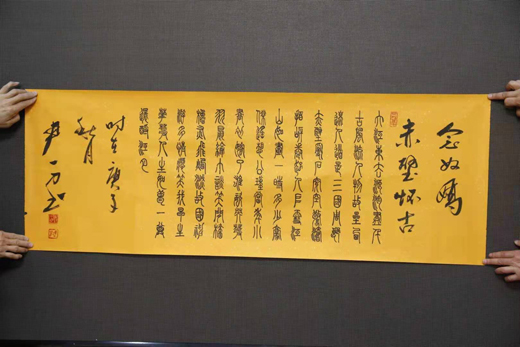 念奴嬌
赤壁怀古
大江東去浪淘盡千
古風流人物故壘西
邊人道是三國周郎
赤壁亂石穿空驚濤
拍岸卷起千堆雪江
山如畫一時多少豪
傑遙想公瑾當年小
喬初嫁了雄姿英發
羽扇綸巾談笑間檣
櫓灰飛煙滅故國神
遊多情應笑我早生
華髮人生如夢一尊
還酹江月
时在庚子
秋月